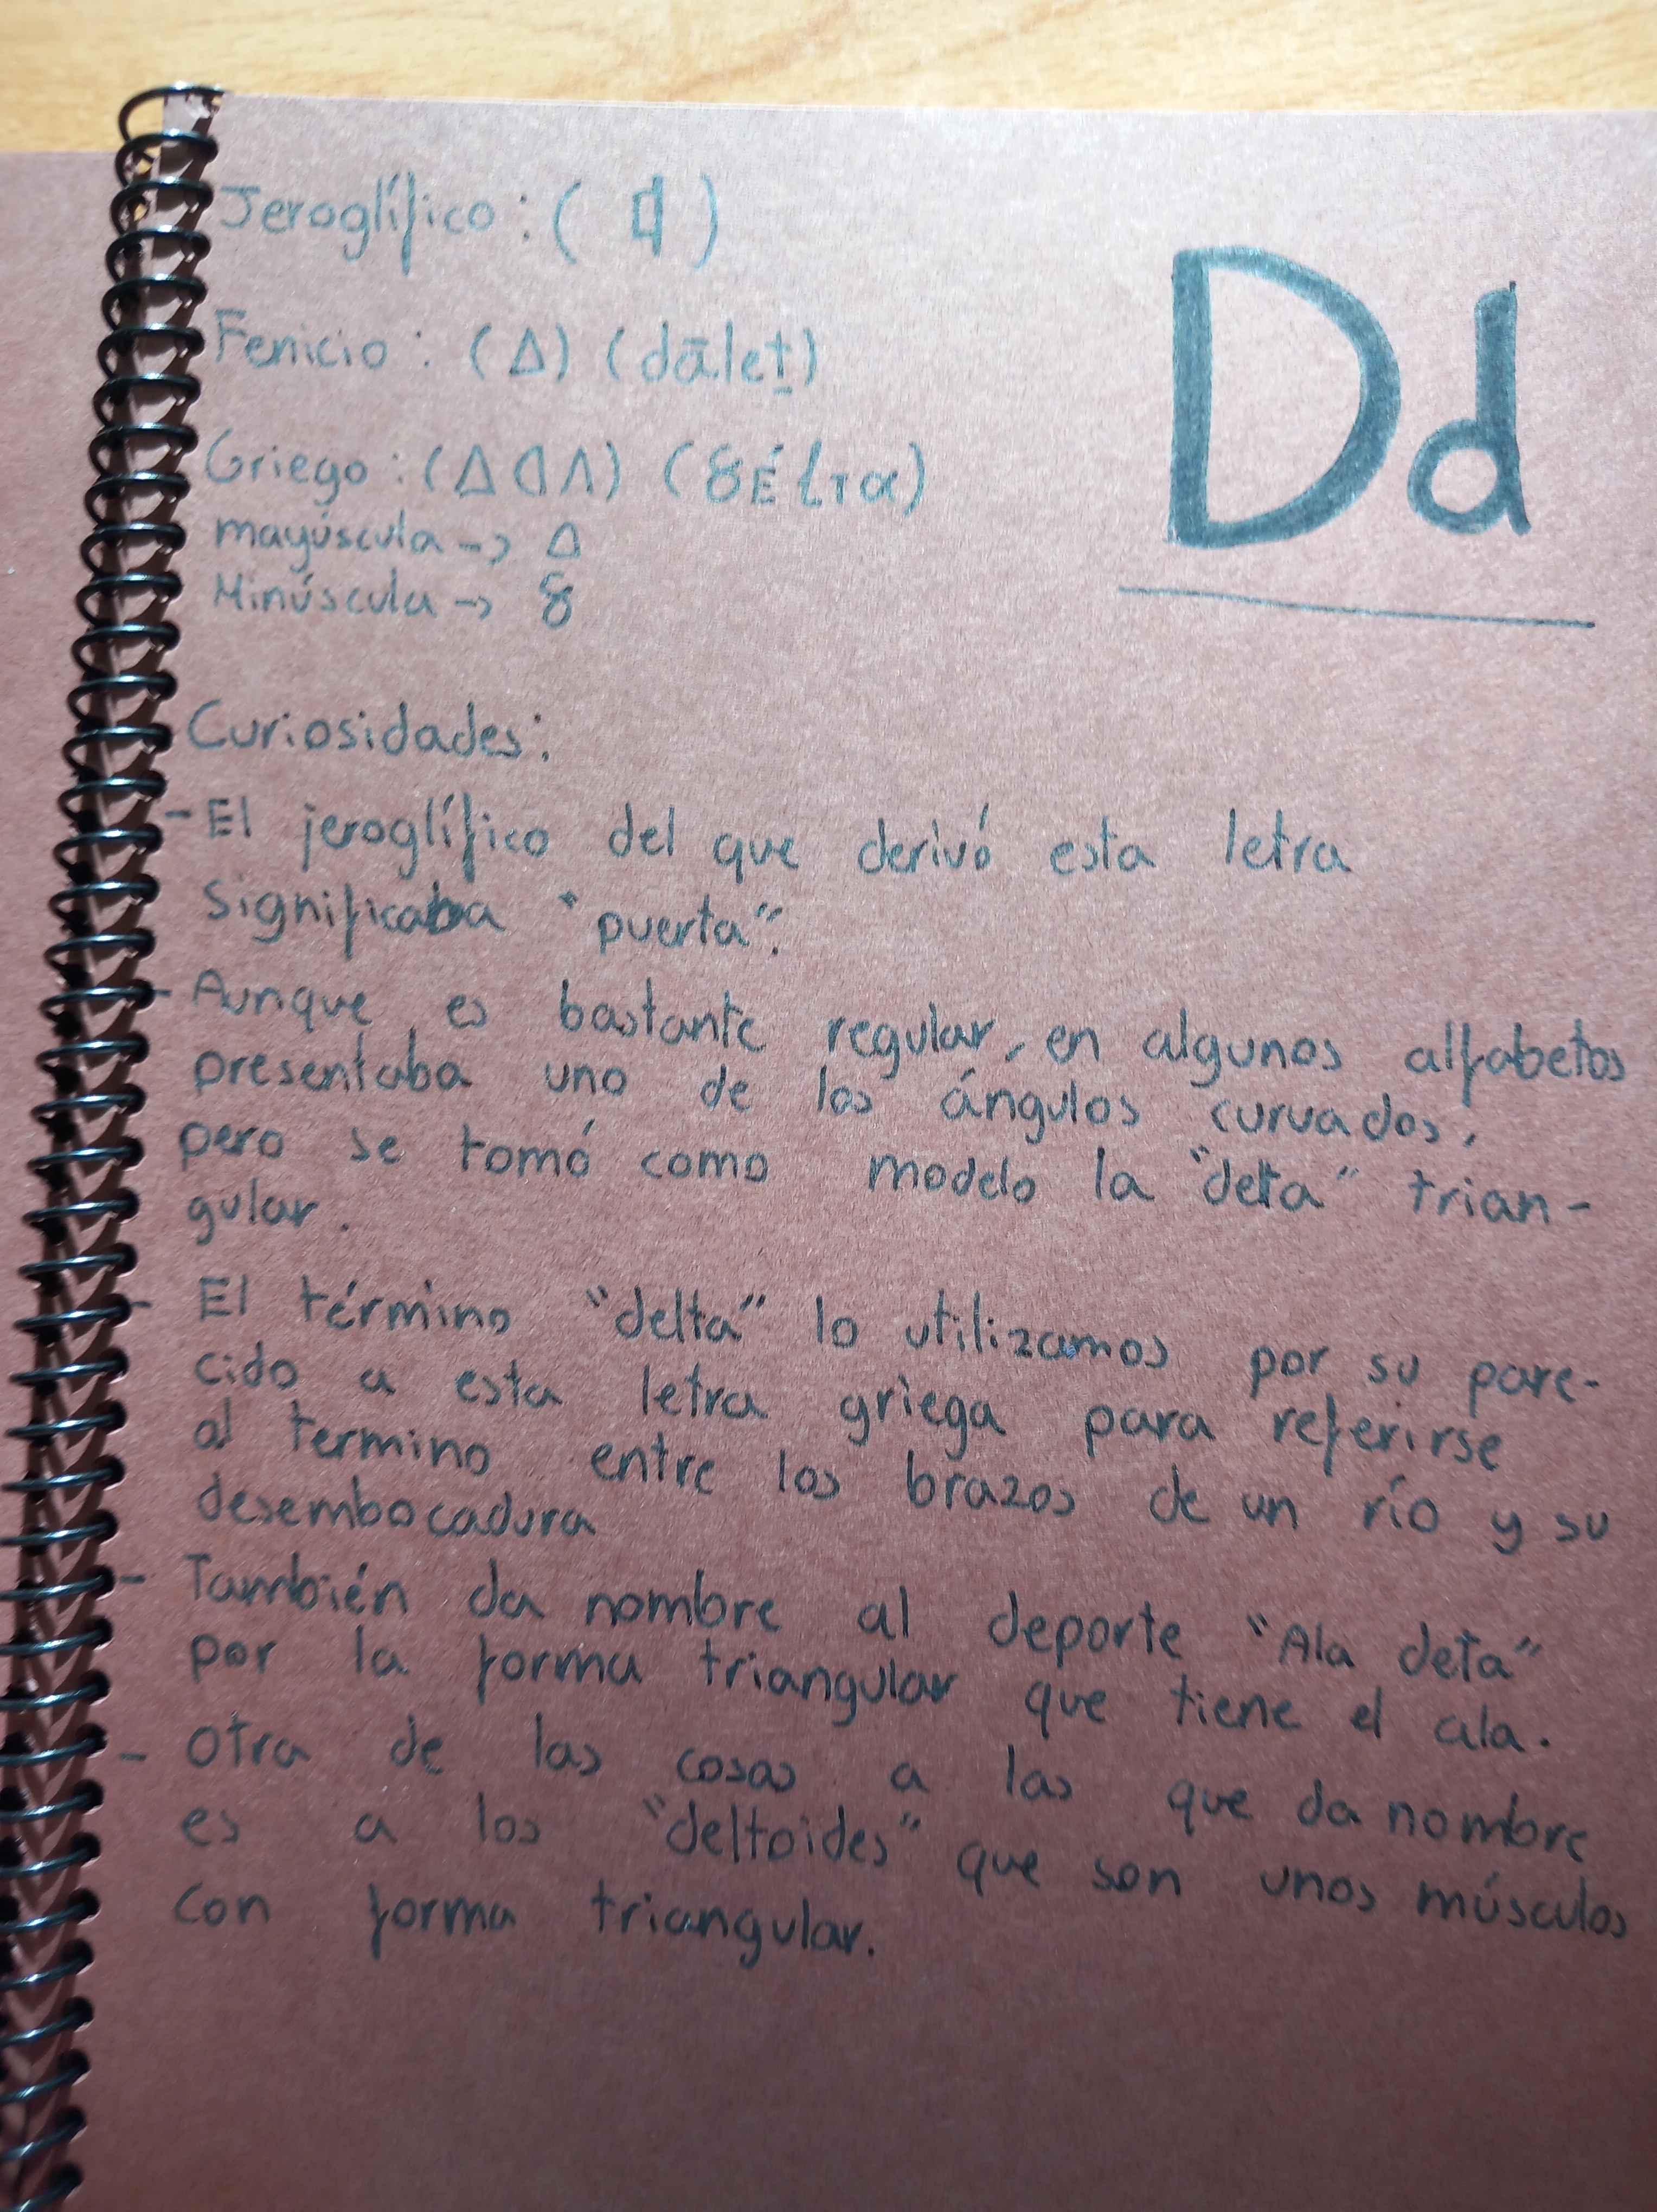 Jeroglífico: ( )
Dd
Fenicio: (Δ) (dāleṯ)
Griego: (Δ ᗡ Λ) (δÉlτα)
mayúscula -> Δ
Minúscula -> δ
Curiosidades:
- El jeroglífico del que derivó esta letra
significaba "puerta".
- Aunque es bastante regular, en algunos alfabetos
presentaba uno de los ángulos curvados,
pero se tomó como modelo la "delta" trian-
gular.
- El término "delta" lo utilizamos por su pare-
cido a esta letra griega para referirse
al termino entre los brazos de un río y su
desembocadura
- También da nombre al deporte "Ala deta"
por la forma triangular que tiene el ala.
- Otra de las cosas a las que da nombre
es a los "deltoides" que son unos músculos
con forma triangular.